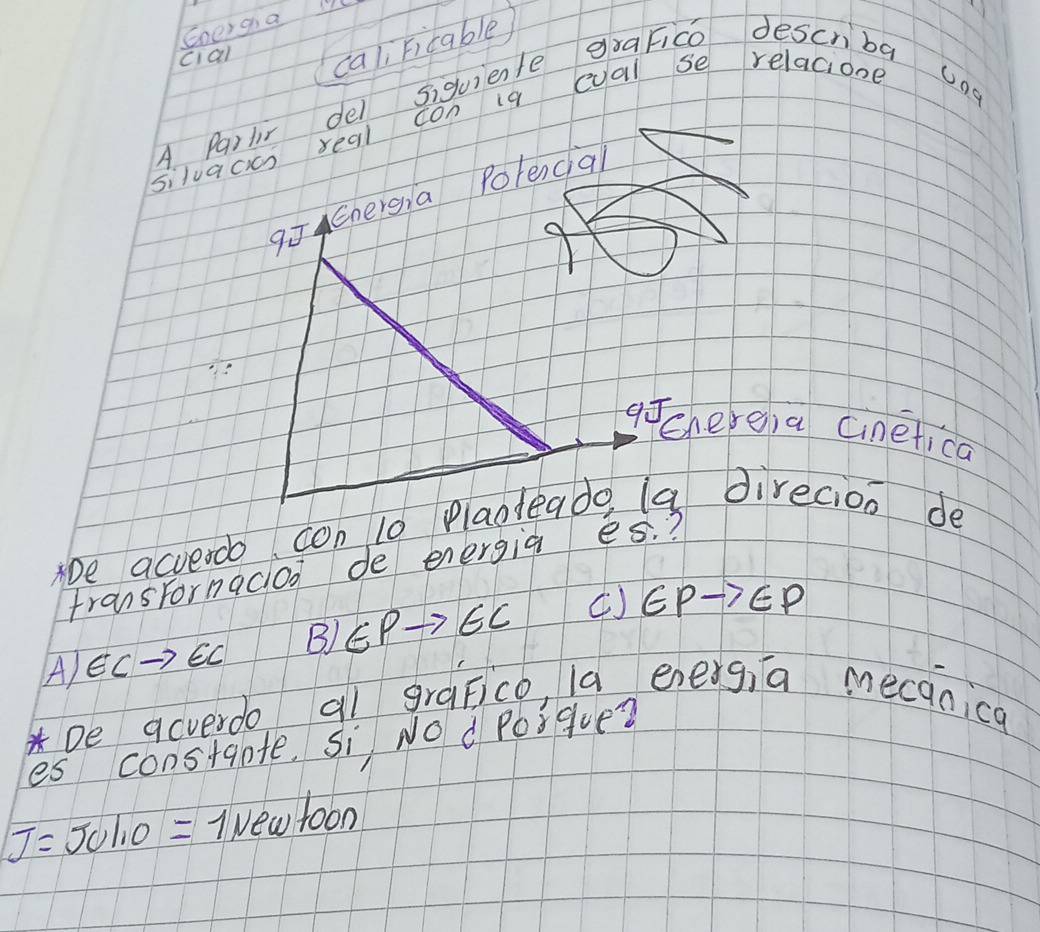 Energia
cial
calificable
A Partir del siguiente grafico describa una
situacion real con la cual se relacione
9J Energia Potencial
9J Energia Cinética
*De acuerdo con lo planteado, la direcion de
transformacion de energia es.?
A) EC→EC B) EP→EC C) EP→EP
* De acuerdo al grafico, la energia mecanica
es constante. Si, NO ¿ Porque?
J= Julio = 1Newtoon